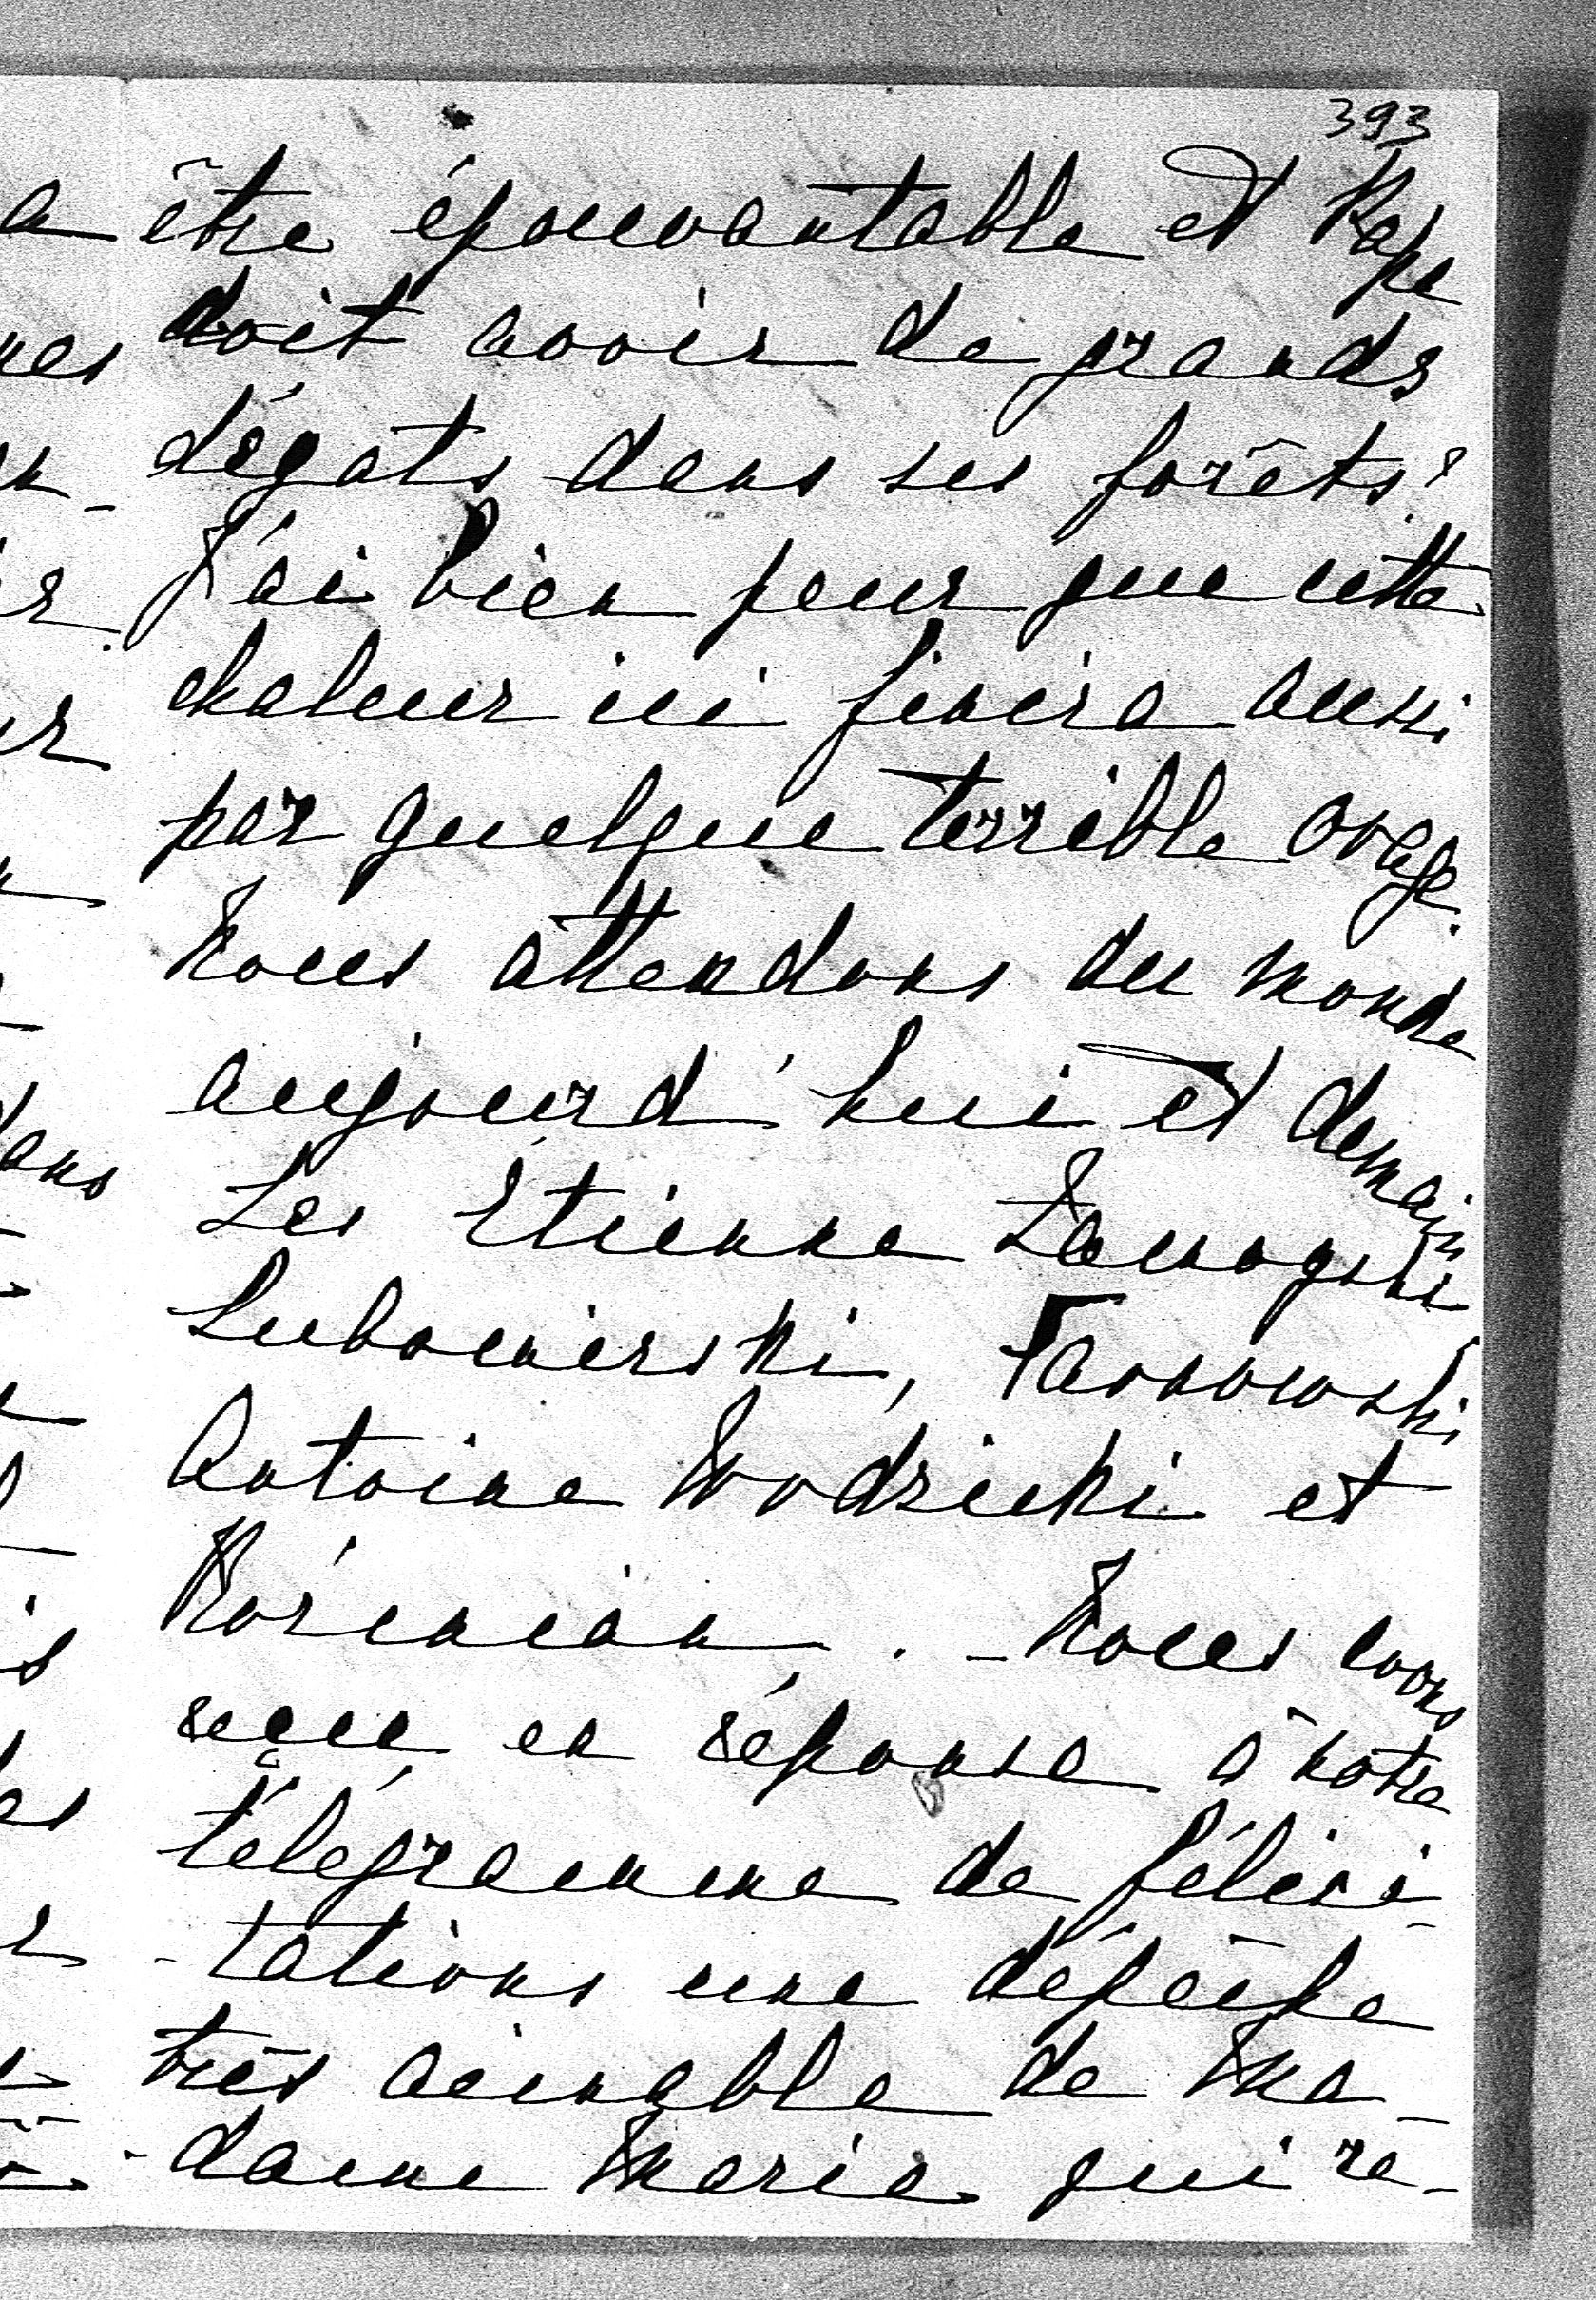 393
être épouvantable et Kape
doit avoir de grands
dégats dans ses forêts?
J'ai bien peur que cette
chaleur ici finira aussi
par quelque terrible orage.
Nous attendons du monde
aujourd'hui et demain
Les Etienne Zamoyski,
Lubomirski, Tarnowski
Antoine Wodzicki et
Kozmian. - Nous avons
reçu, en réponse à notre
télégramme de félici-
-tations une dépêche
très aimable de Ma-
-dame Maria qui re-